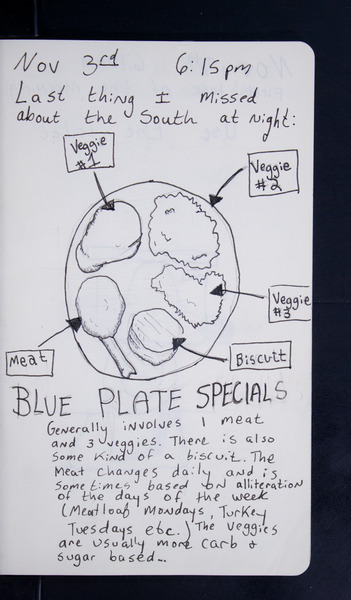 Nov 3rd 6:15pm
Last thing I missed
about the South at night:
Veggie
#1
Veggie
#2
Veggie
#3
Meat
Biscuit
BLUE PLATE SPECIALS
Generally involves 1 meat
and 3 veggies. There is also
some kind of a biscuit. The
Meat changes daily and is
sometimes based on alliteration
of the days of the week
(Meatloaf Mondays, Turkey
Tuesdays etc.) The veggies
are usually more carb &
sugar based...